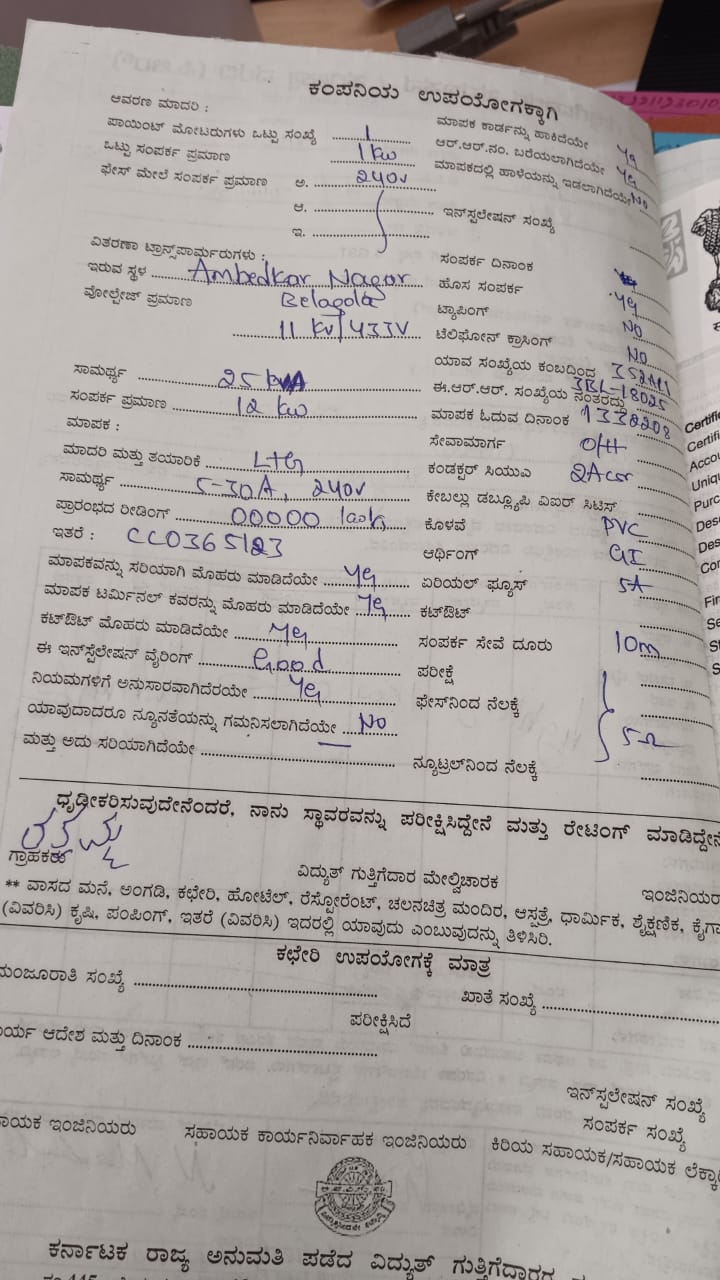 ಕಂಪನಿಯ ಉಪಯೋಗಕ್ಕಾಗಿ
ಆವರಣ ಮಾದರಿ :
ಪಾಯಿಂಟ್ ಮೋಟರುಗಳು ಒಟ್ಟು ಸಂಖ್ಯೆ 1
ಒಟ್ಟು ಸಂಪರ್ಕ ಪ್ರಮಾಣ 1 kw
ಫೇಸ್ ಮೇಲೆ ಸಂಪರ್ಕ ಪ್ರಮಾಣ ಅ. 240v
ಆ.
ಇ.
ವಿತರಣಾ ಟ್ರಾನ್ಸ್‌ಪಾರ್ಮರುಗಳು :
ಇರುವ ಸ್ಥಳ Ambedkar Nagar
Belagola
ವೋಲ್ಟೇಜ್ ಪ್ರಮಾಣ
11 kv/433V
ಸಾಮರ್ಥ್ಯ 25 kVA
ಸಂಪರ್ಕ ಪ್ರಮಾಣ 12 kw
ಮಾಪಕ :
ಮಾದರಿ ಮತ್ತು ತಯಾರಿಕೆ L+G
ಸಾಮರ್ಥ್ಯ 5-30A, 240v
ಪ್ರಾರಂಭದ ರೀಡಿಂಗ್ 00000
ಇತರೆ :
ಮಾಪಕವನ್ನು ಸರಿಯಾಗಿ ಮೊಹರು ಮಾಡಿದೆಯೇ Yes
ಮಾಪಕ ಟರ್ಮಿನಲ್ ಕವರನ್ನು ಮೊಹರು ಮಾಡಿದೆಯೇ Yes
ಕಟ್‌ಔಟ್ ಮೊಹರು ಮಾಡಿದೆಯೇ Yes
ಈ ಇನ್‌ಸ್ಟೆಲೇಷನ್ ವೈರಿಂಗ್ Good
ನಿಯಮಗಳಿಗೆ ಅನುಸಾರವಾಗಿದೆರಯೇ Yes
ಯಾವುದಾದರೂ ನ್ಯೂನತೆಯನ್ನು ಗಮನಿಸಲಾಗಿದೆಯೇ No
ಮತ್ತು ಅದು ಸರಿಯಾಗಿದೆಯೇ
ಮಾಪಕ ಕಾರ್ಡನ್ನು ಹಾಕಿದೆಯೇ Yes
ಆರ್.ಆರ್.ನಂ. ಬರೆಯಲಾಗಿದೆಯೇ Yes
ಮಾಪಕದಲ್ಲಿ ಹಾಳೆಯನ್ನು ಇಡಲಾಗಿದೆಯೇ No
ಇನ್‌ಸ್ಪಲೇಷನ್ ಸಂಖ್ಯೆ
ಸಂಪರ್ಕ ದಿನಾಂಕ
ಹೊಸ ಸಂಪರ್ಕ Yes
ಟ್ಯಾಪಿಂಗ್ NO
ಟೆಲಿಫೋನ್ ಕ್ರಾಸಿಂಗ್ No
ಯಾವ ಸಂಖ್ಯೆಯ ಕಂಬದಿಂದ
ಈ.ಆರ್.ಆರ್. ಸಂಖ್ಯೆಯ ನಂತರದ್ದು 3BL-18025
ಮಾಪಕ ಓದುವ ದಿನಾಂಕ
ಸೇವಾಮಾರ್ಗ O/H
ಕಂಡಕ್ಟರ್ ಸಿಯುವಿ
ಕೇಬಲ್ಲು ಡಬ್ಲ್ಯೂಪಿ ವಿಐರ್ ಸಿಟಿಸ್
ಕೊಳವೆ PVC
ಆರ್ಥಿಂಗ್ GI
ಏರಿಯಲ್ ಫ್ಯೂಸ್ 5A
ಕಟ್‌ಔಟ್
ಸಂಪರ್ಕ ಸೇವೆ ದೂರು 10m
ಪರೀಕ್ಷೆ
ಫೇಸ್‌ನಿಂದ ನೆಲಕ್ಕೆ
5Ω
ನ್ಯೂಟ್ರಲ್‌ನಿಂದ ನೆಲಕ್ಕೆ
ಧೃಡೀಕರಿಸುವುದೇನೆಂದರೆ, ನಾನು ಸ್ಥಾವರವನ್ನು ಪರೀಕ್ಷಿಸಿದ್ದೇನೆ ಮತ್ತು ರೇಟಿಂಗ್ ಮಾಡಿದ್ದೇನೆ
ಗ್ರಾಹಕರು ವಿದ್ಯುತ್ ಗುತ್ತಿಗೆದಾರ ಮೇಲ್ವಿಚಾರಕ ಇಂಜಿನಿಯರ
** ವಾಸದ ಮನೆ, ಅಂಗಡಿ, ಕಛೇರಿ, ಹೋಟೆಲ್, ರೆಸ್ಟೋರೆಂಟ್, ಚಲನಚಿತ್ರ ಮಂದಿರ, ಆಸ್ಪತ್ರೆ, ಧಾರ್ಮಿಕ, ಶೈಕ್ಷಣಿಕ, ಕೈಗಾ
(ವಿವರಿಸಿ) ಕೃಷಿ, ಪಂಪಿಂಗ್, ಇತರೆ (ವಿವರಿಸಿ) ಇದರಲ್ಲಿ ಯಾವುದು ಎಂಬುವುದನ್ನು ತಿಳಿಸಿರಿ.
ಕಛೇರಿ ಉಪಯೋಗಕ್ಕೆ ಮಾತ್ರ
ಮಂಜೂರಾತಿ ಸಂಖ್ಯೆ ಖಾತೆ ಸಂಖ್ಯೆ
ಪರೀಕ್ಷಿಸಿದೆ
ಾರ್ಯ ಆದೇಶ ಮತ್ತು ದಿನಾಂಕ
ಇನ್‌ಸ್ಪಲೇಷನ್ ಸಂಖ್ಯೆ
ಸಂಪರ್ಕ ಸಂಖ್ಯೆ
ಾಯಕ ಇಂಜಿನಿಯರು ಸಹಾಯಕ ಕಾರ್ಯನಿರ್ವಾಹಕ ಇಂಜಿನಿಯರು ಕಿರಿಯ ಸಹಾಯಕ/ಸಹಾಯಕ ಲೆಕ್ಕಾ
ಕರ್ನಾಟಕ ರಾಜ್ಯ ಅನುಮತಿ ಪಡೆದ ವಿದ್ಯುತ್ ಗುತ್ತಿಗೆದಾರರ